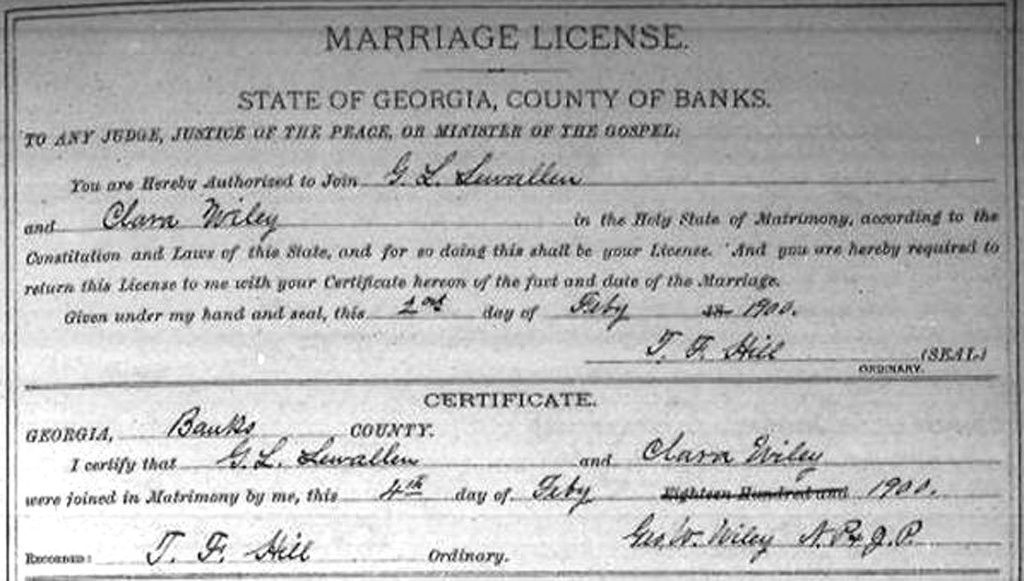 MARRIAGE LICENSE.
STATE OF GEORGIA, COUNTY OF BANKS.
TO ANY JUDGE, JUSTICE OF THE PEACE, OR MINISTER OF THE GOSPEL:
You are Hereby Authorized to Join G. L. Lewallen
and Clara Wiley in the Holy State of Matrimony, according to the
Constitution and Laws of this State, and for so doing this shall be your License. And you are hereby required to
return this License to me with your Certificate hereon of the fact and date of the Marriage.
Given under my hand and seal, this 2nd day of Feby 18 1900.
T. F. Hill (SEAL)
ORDINARY.
CERTIFICATE.
GEORGIA, Banks COUNTY.
I certify that G. L. Lewallen and Clara Wiley
were joined in Matrimony by me, this 4th day of Feby Eighteen Hundred and 1900.
Geo. W. Wiley N. P. & J. P.
RECORDED: T. F. Hill Ordinary.